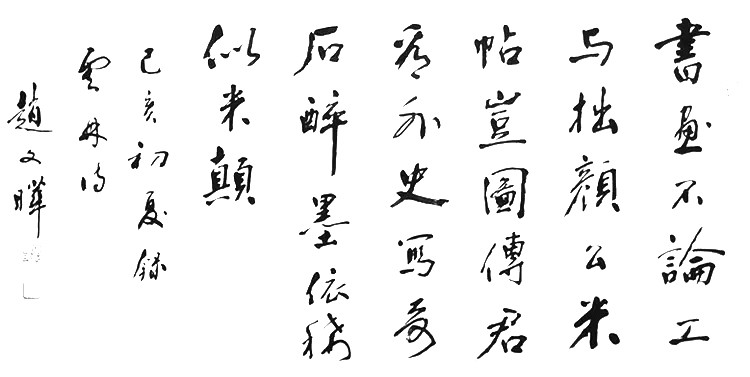 書畫不論工
与拙顏公米
帖豈圖傳君
看外史寫奇
石醉墨依稀
似米顛
己亥初夏録
雲林诗
趙文曄